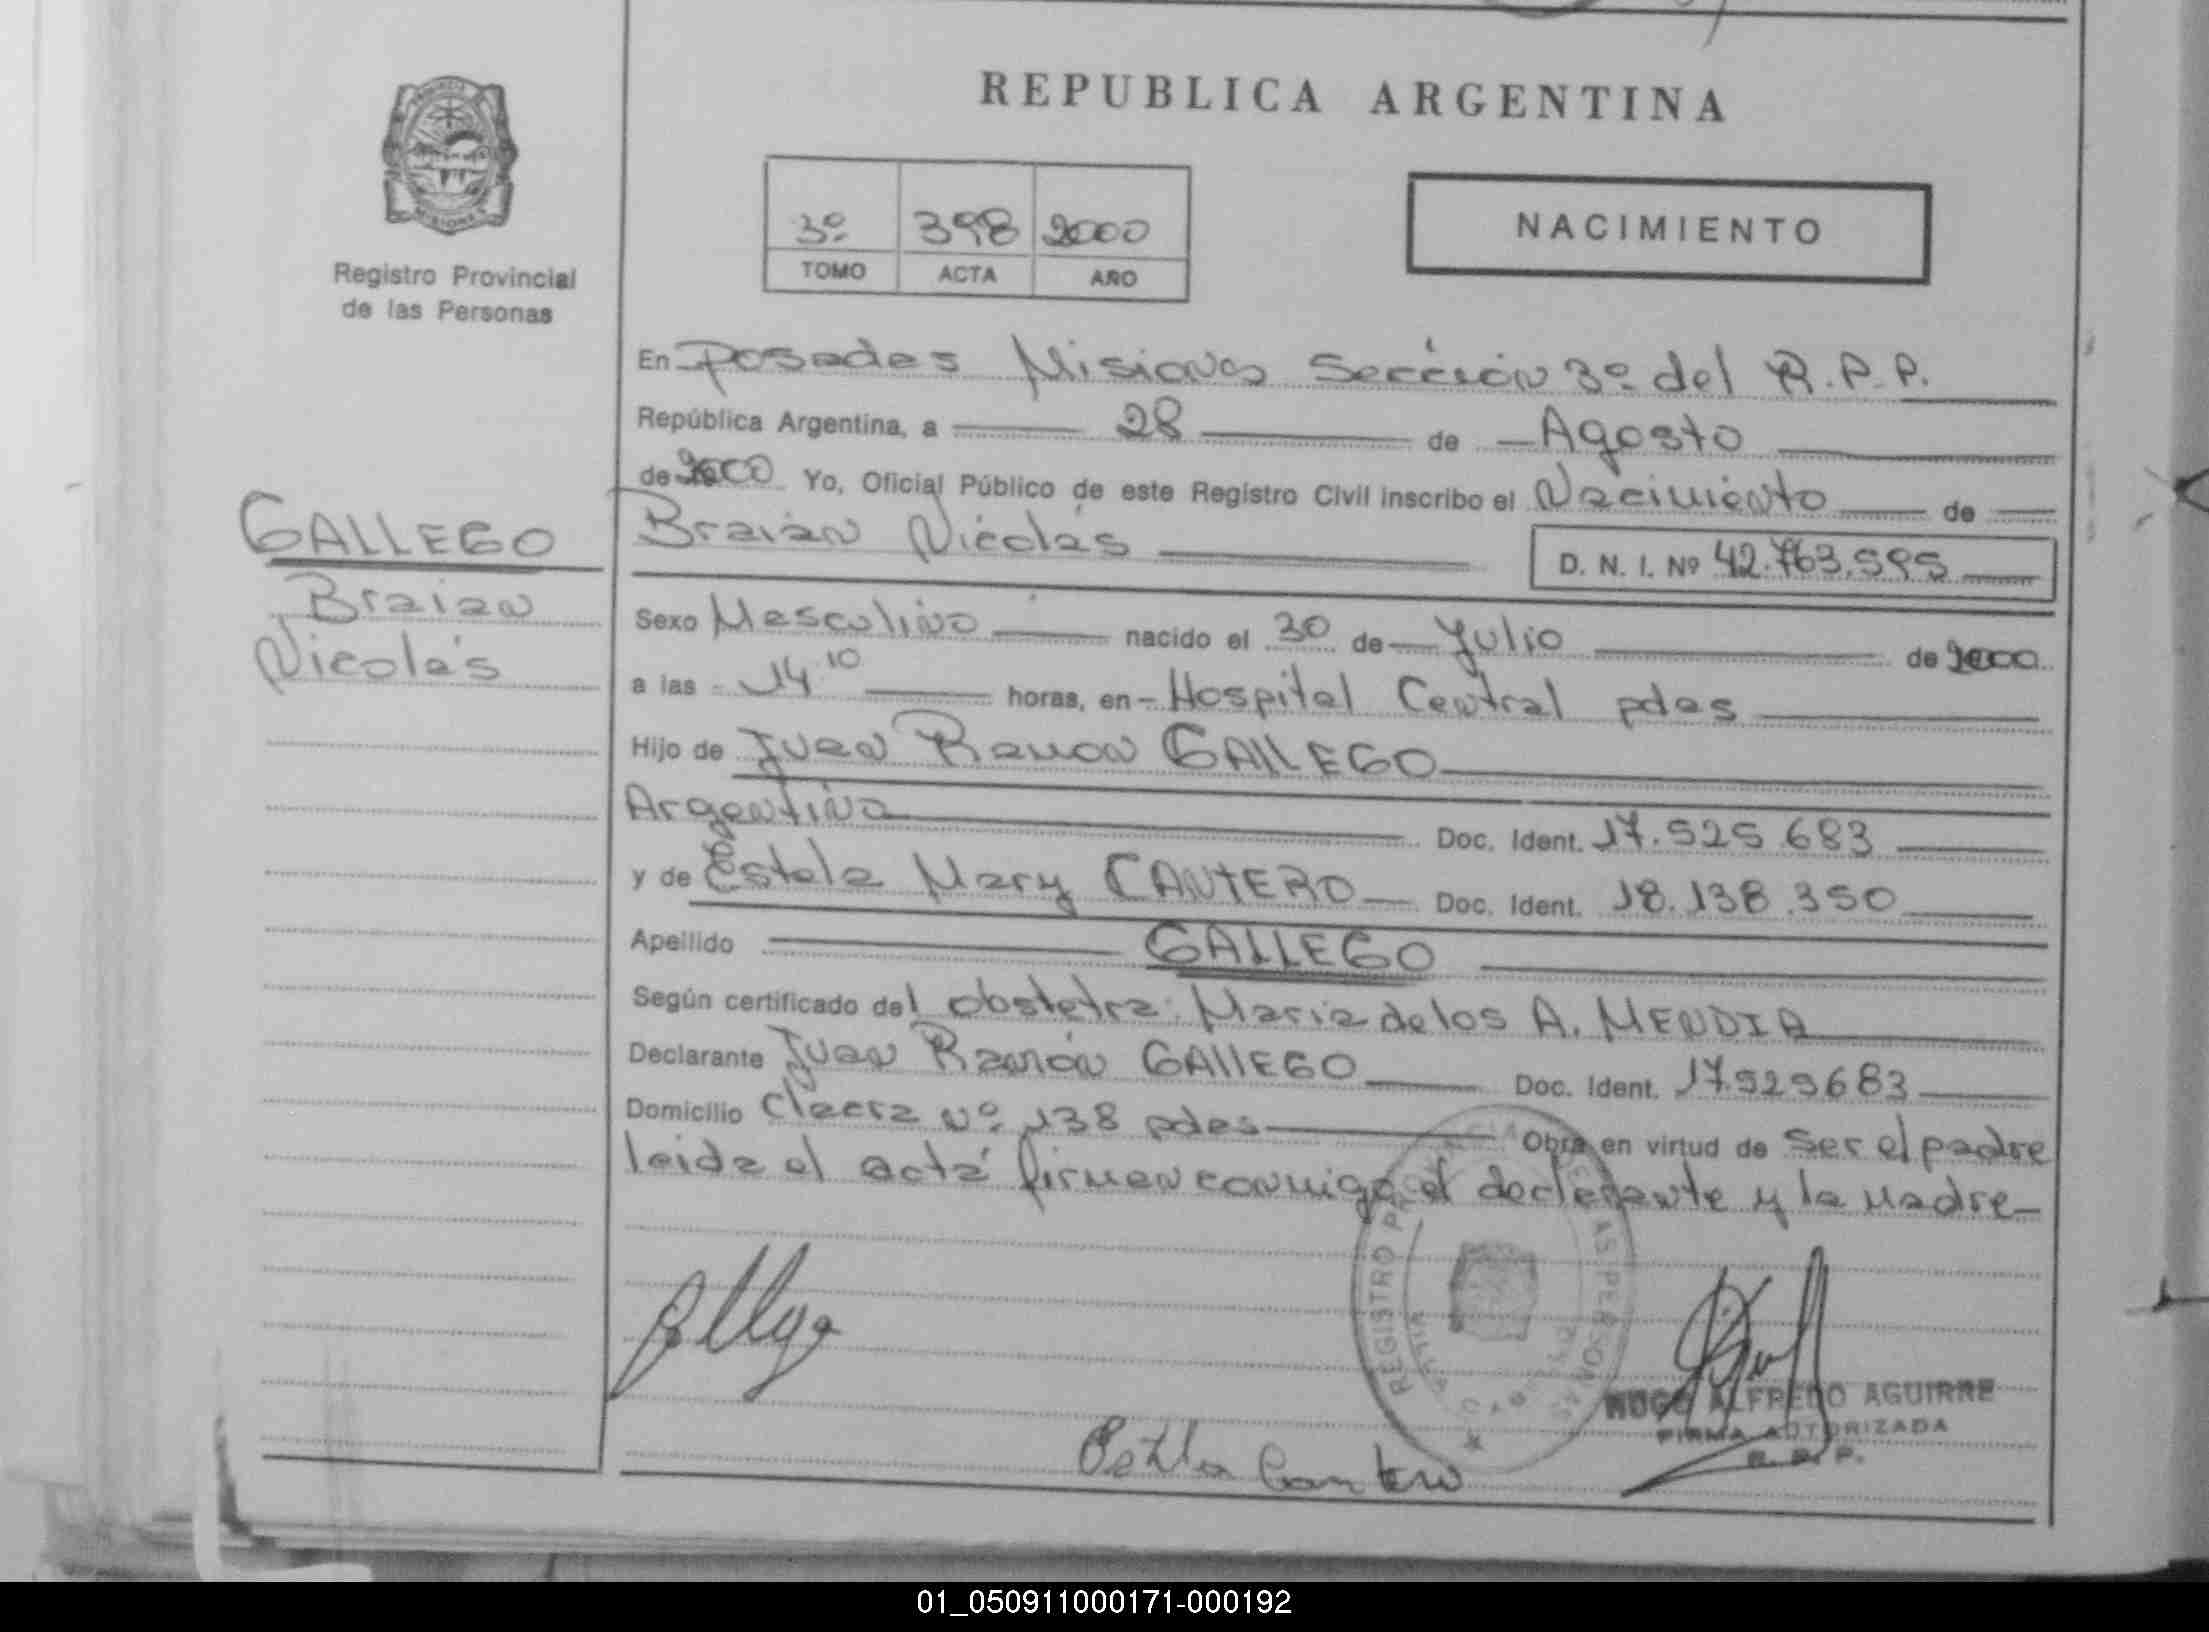 REPUBLICA ARGENTINA
PROVINCIA
MISIONES
Registro Provincial
de las Personas
3º 398 2000
TOMO ACTA AÑO
NACIMIENTO
En Posadas Misiones Sección 3º del R.P.P.
República Argentina, a 28 de Agosto
de 2000 Yo, Oficial Público de este Registro Civil inscribo el Nacimiento de
Braian Nicolás
D. N. I. Nº 42.763.595
GALLEGO
Braian
Nicolás
Sexo Masculino nacido el 30 de Julio de 2000
a las 14 10 horas, en Hospital Central pdas
Hijo de Juan Ramon GALLEGO
Argentino Doc. Ident. 17.525.683
y de Estela Mary CANTERO Doc. Ident. 18.138.350
Apellido GALLEGO
Según certificado del obstetra: Maria de los A. MENDIA
Declarante Juan Ramón GALLEGO Doc. Ident. 17.525683
Domicilio Nº 138 pdas Obra en virtud de ser el padre
leida el acta firman conmigo el declarante y la madre
REGISTRO DE LAS PERSONAS
HUGO ALFREDO AGUIRRE
FIRMA AUTORIZADA
R. P. P.
Cantero
01_050911000171-000192